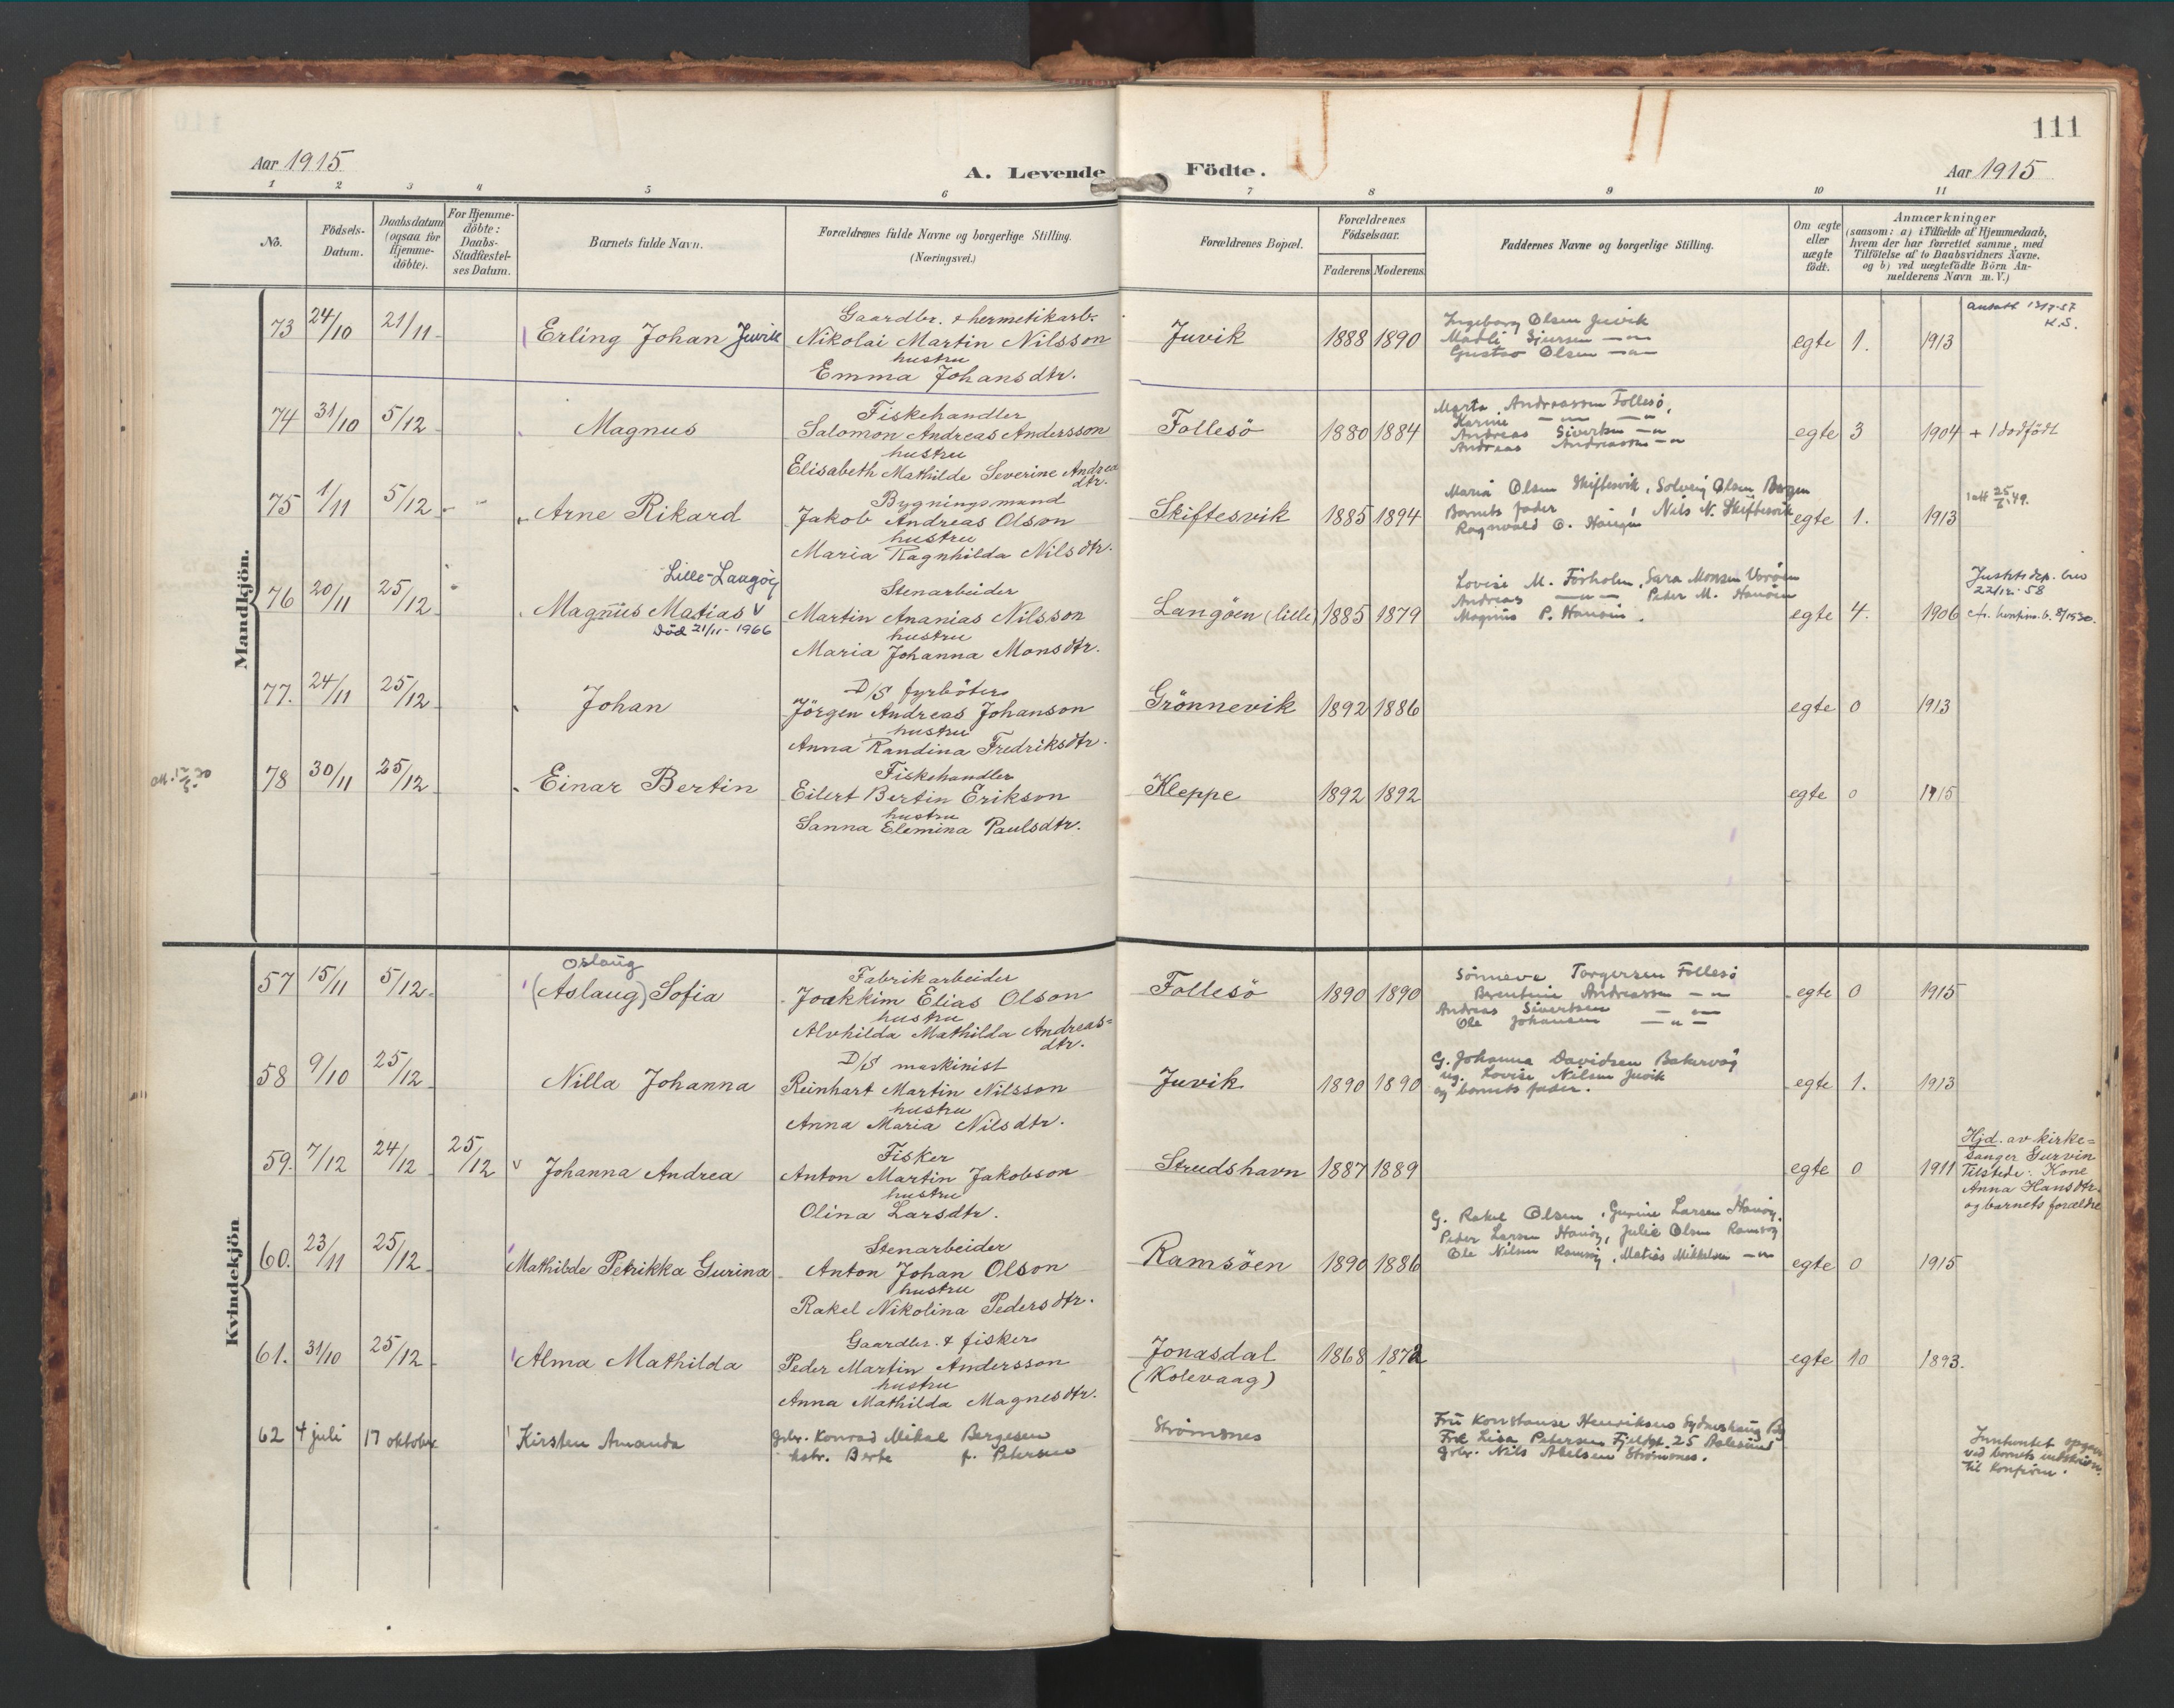 111
Aar 1915
A. Levende Födte.
Aar 1915
1 2 3 4 5 6 7 8 9 10 11
No.
Födsels-
Datum.
Daabsdatum
(ogsaa for
Hjemme-
döbte).
For Hjemme-
döbte:
Daabs-
Stadfæstel-
ses Datum.
Barnets fulde Navn.
Forældrenes fulde Navne og borgerlige Stilling.
(Næringsvei.)
Forældrenes Bopæl.
Forældrenes
Födselsaar.
Faderens Moderens
Faddernes Navne og borgerlige Stilling.
Om ægte
eller
uægte
födt.
Anmærkninger
(saasom: a) i Tilfælde af Hjemmedaab,
hvem der har forrettet samme, med
Tilföielse af to Daabsvidners Navne.
og b) ved uægtefödte Börn An-
melderens Navn m.V.)
Mandkjön.
73 24/10 21/11 Erling Johan Juvik
Gaardbr. & hermetikarb.
Nikolai Martin Nilsson
hustru
Emma Johansdtr.
Juvik 1888 1890
Ingeborg Olsen Juvik
Madli Sjursen —"—
Gustav Olsen —"—
egte 1. 1913
K.S.
74 31/10 5/12 Magnus
Fiskehandler
Salomon Andreas Andersson
hustru
Elisabeth Mathilde Severine Andrea
dtr.
Follesö 1880 1884
Marta Andreassen Follesö,
Karine —"— —"—
Andreas Sivertsen —"—
Andreas Andreassen —"—
egte 3 1904 + 1 dødfödt
75 1/11 5/12 Arne Rikard
Bygningsmand
Jakob Andreas Olson
hustru
Maria Ragnhilda Nilsdtr.
Skiftesvik 1885 1894
Maria Olsen Skiftesvik, Solveig Olsen Bergen
Barnets fader, Nils N. Skiftesvik
Ragnvald O. Haugen
egte 1. 1913
76 20/11 25/12 Magnus Matias v
Lille-Langöy
Död 21/11-1966
Stenarbeider
Martin Ananias Nilsson
hustru
Maria Johanna Monsdtr.
Langöen (lille) 1885 1879
Lovise M. Forholm, Sara Monsen
Andreas —"— Peter M. Hanöen
Magnus P. Hanöen.
egte 4. 1906
Justitsdep. brev
22/12-58
77. 24/11 25/12 Johan
D/S fyrböter
Jörgen Andreas Johanson
hustru
Anna Randina Fredriksdtr.
Grönnevik 1892 1886
egte 0 1913
78 30/11 25/12 Einar Bertin
Fiskehandler
Eilert Bertin Erikson
hustru
Sanna Elemina Paulsdtr.
Kleppe 1892 1892
egte 0 1915
Kvindekjön
57 15/11 5/12 (Aslaug) Sofia
Oslaug
Fabrikarbeider
Joakkim Elias Olson
hustru
Alvhilda Mathilda Andreas=
dtr.
Follesö 1890 1890
Sönneva Torgersen Follesö
Berentine Andreassen —"—
Andreas Sivertsen —"—
Ole Johansen —"—
egte 0 1915
58 9/10 25/12 Nilla Johanna
D/S maskinist
Reinhart Martin Nilsson
hustru
Anna Maria Nilsdtr.
Juvik 1890 1890
G. Johanna Davidsen Bakervåg
ug. Lovise Nilsen Juvik
og barnets fader.
egte 1. 1913
59. 7/12 24/12 25/12 v Johanna Andrea
Fisker
Anton Martin Jakobson
hustru
Olina Larsdtr.
Strudshavn 1887 1889
egte 0 1911
Hjd. av kirke=
sanger Gurvin
Tilstede: Kone
Anna Hansdtr.
og barnets forældre
60. 23/11 25/12 Mathilde Petrikka Gurina
Stenarbeider
Anton Johan Olson
hustru
Rakel Nikolina Pedersdtr.
Ramsöen 1890 1886
G. Rakel Olsen, Gurine Larsen Hanöy.
Peder Larsen Hanöy, Julie Olsen Ramsöy
Ole Nilsen Ramsöy, Matias Mikkelsen —"—
egte 0 1915
61. 31/10 25/12 Alma Mathilda
Gaardbr. & fisker
Peder Martin Andersson
hustru
Anna Mathilda Magnesdtr.
Jonasdal
(Kolevaag)
1868 1872
egte 10 1893.
62 4 juli 17 oktober Kirsten Amanda
Grbr. Konrad Mikal Bergesen
hstr. Berte f. Petersen
Strömsnes
Fru Konstanse Henriksens Sydneshaug Bg
Frk Lisa Petersen Fjeldgt. 25 Aalesund
Grbr. Nils Abelsen Strömsnes.
Innhentet opgave
ved barnets innskrivn.
til Konfirm.